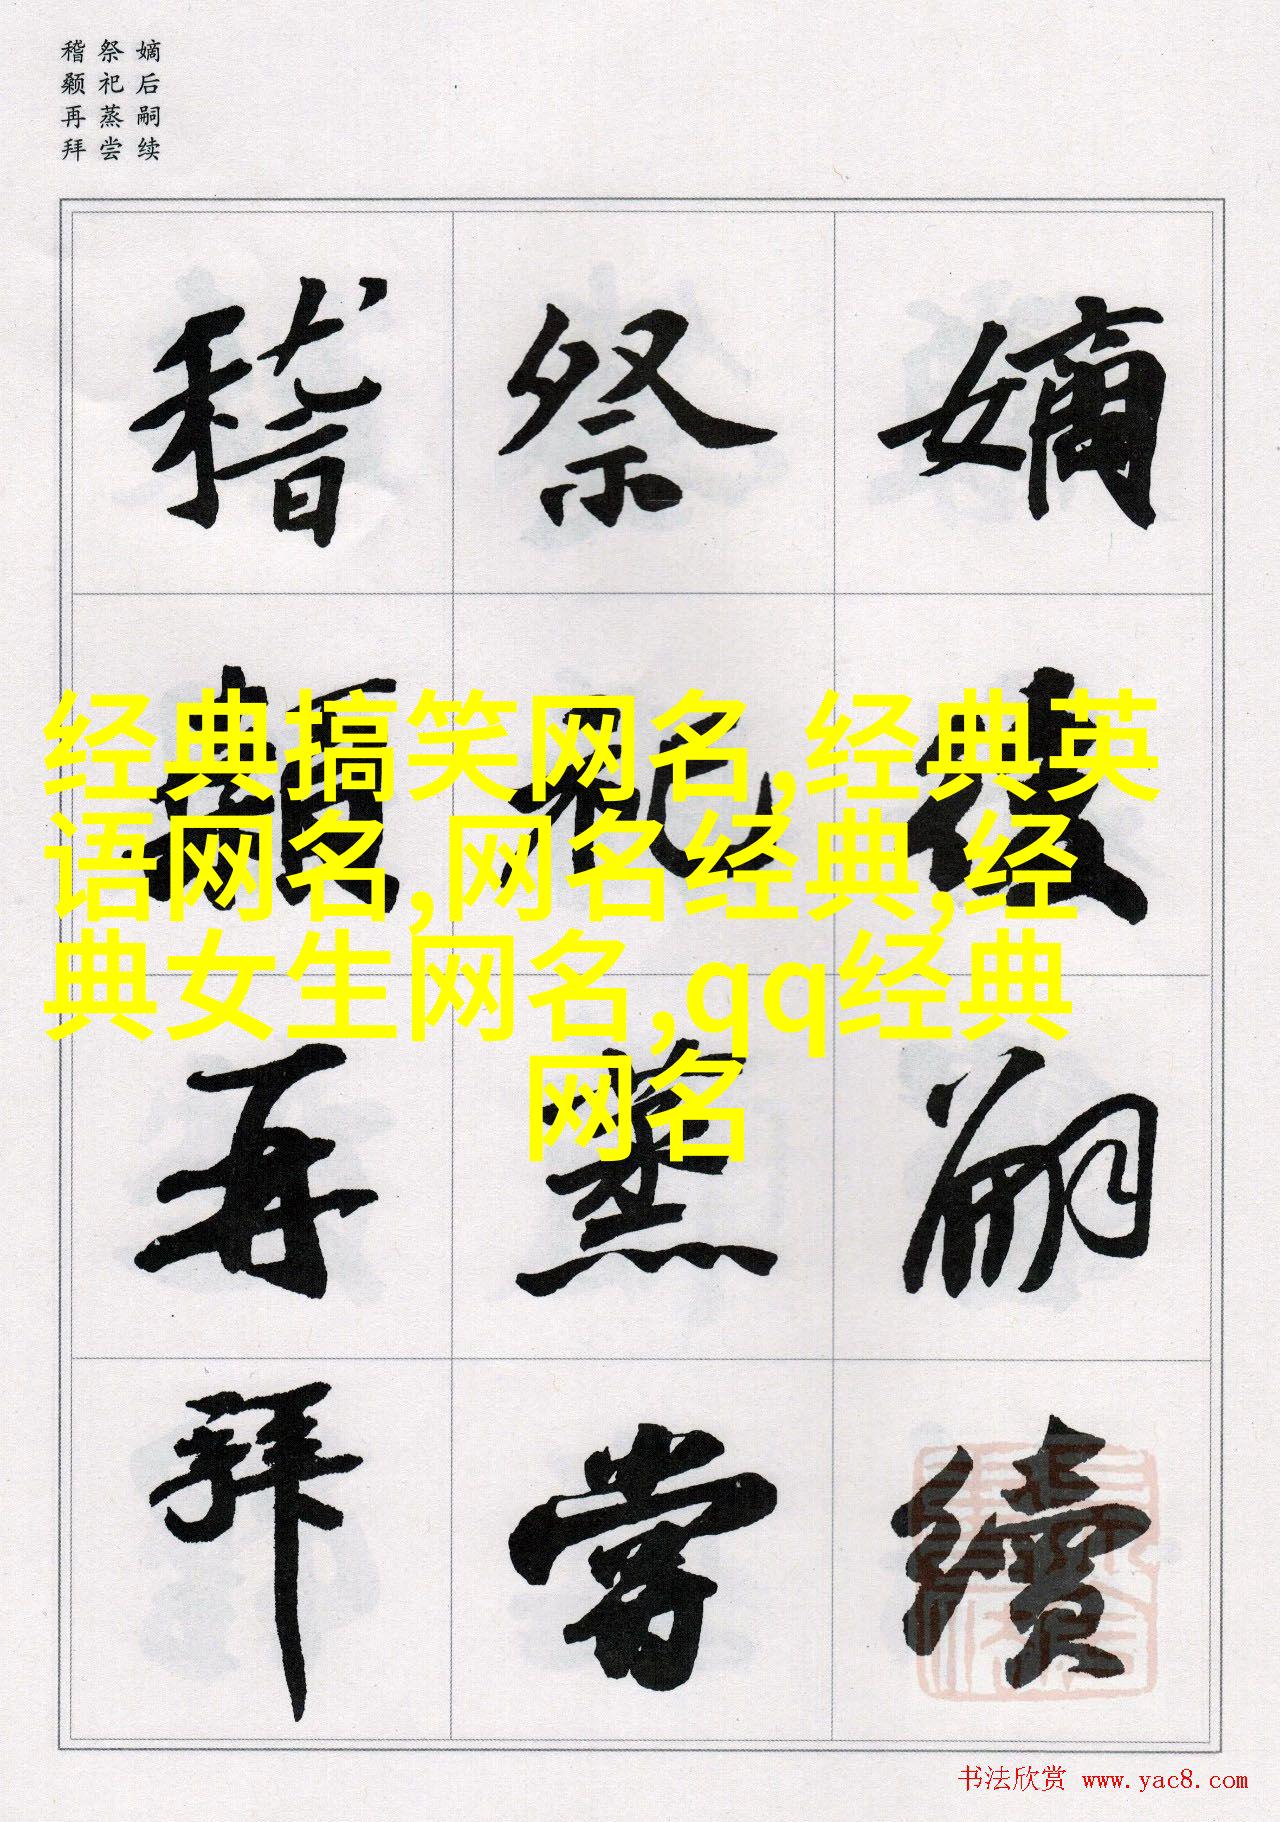 嫡后嗣续
祭祀蒸尝
稽颡再拜
嫡後嗣續
祭祀蒸嘗
稽顙再拜
经典搞笑网名,经典英
语网名,网名经典,经
典女生网名,qq经典
网名
书法欣赏 www.yac8.com